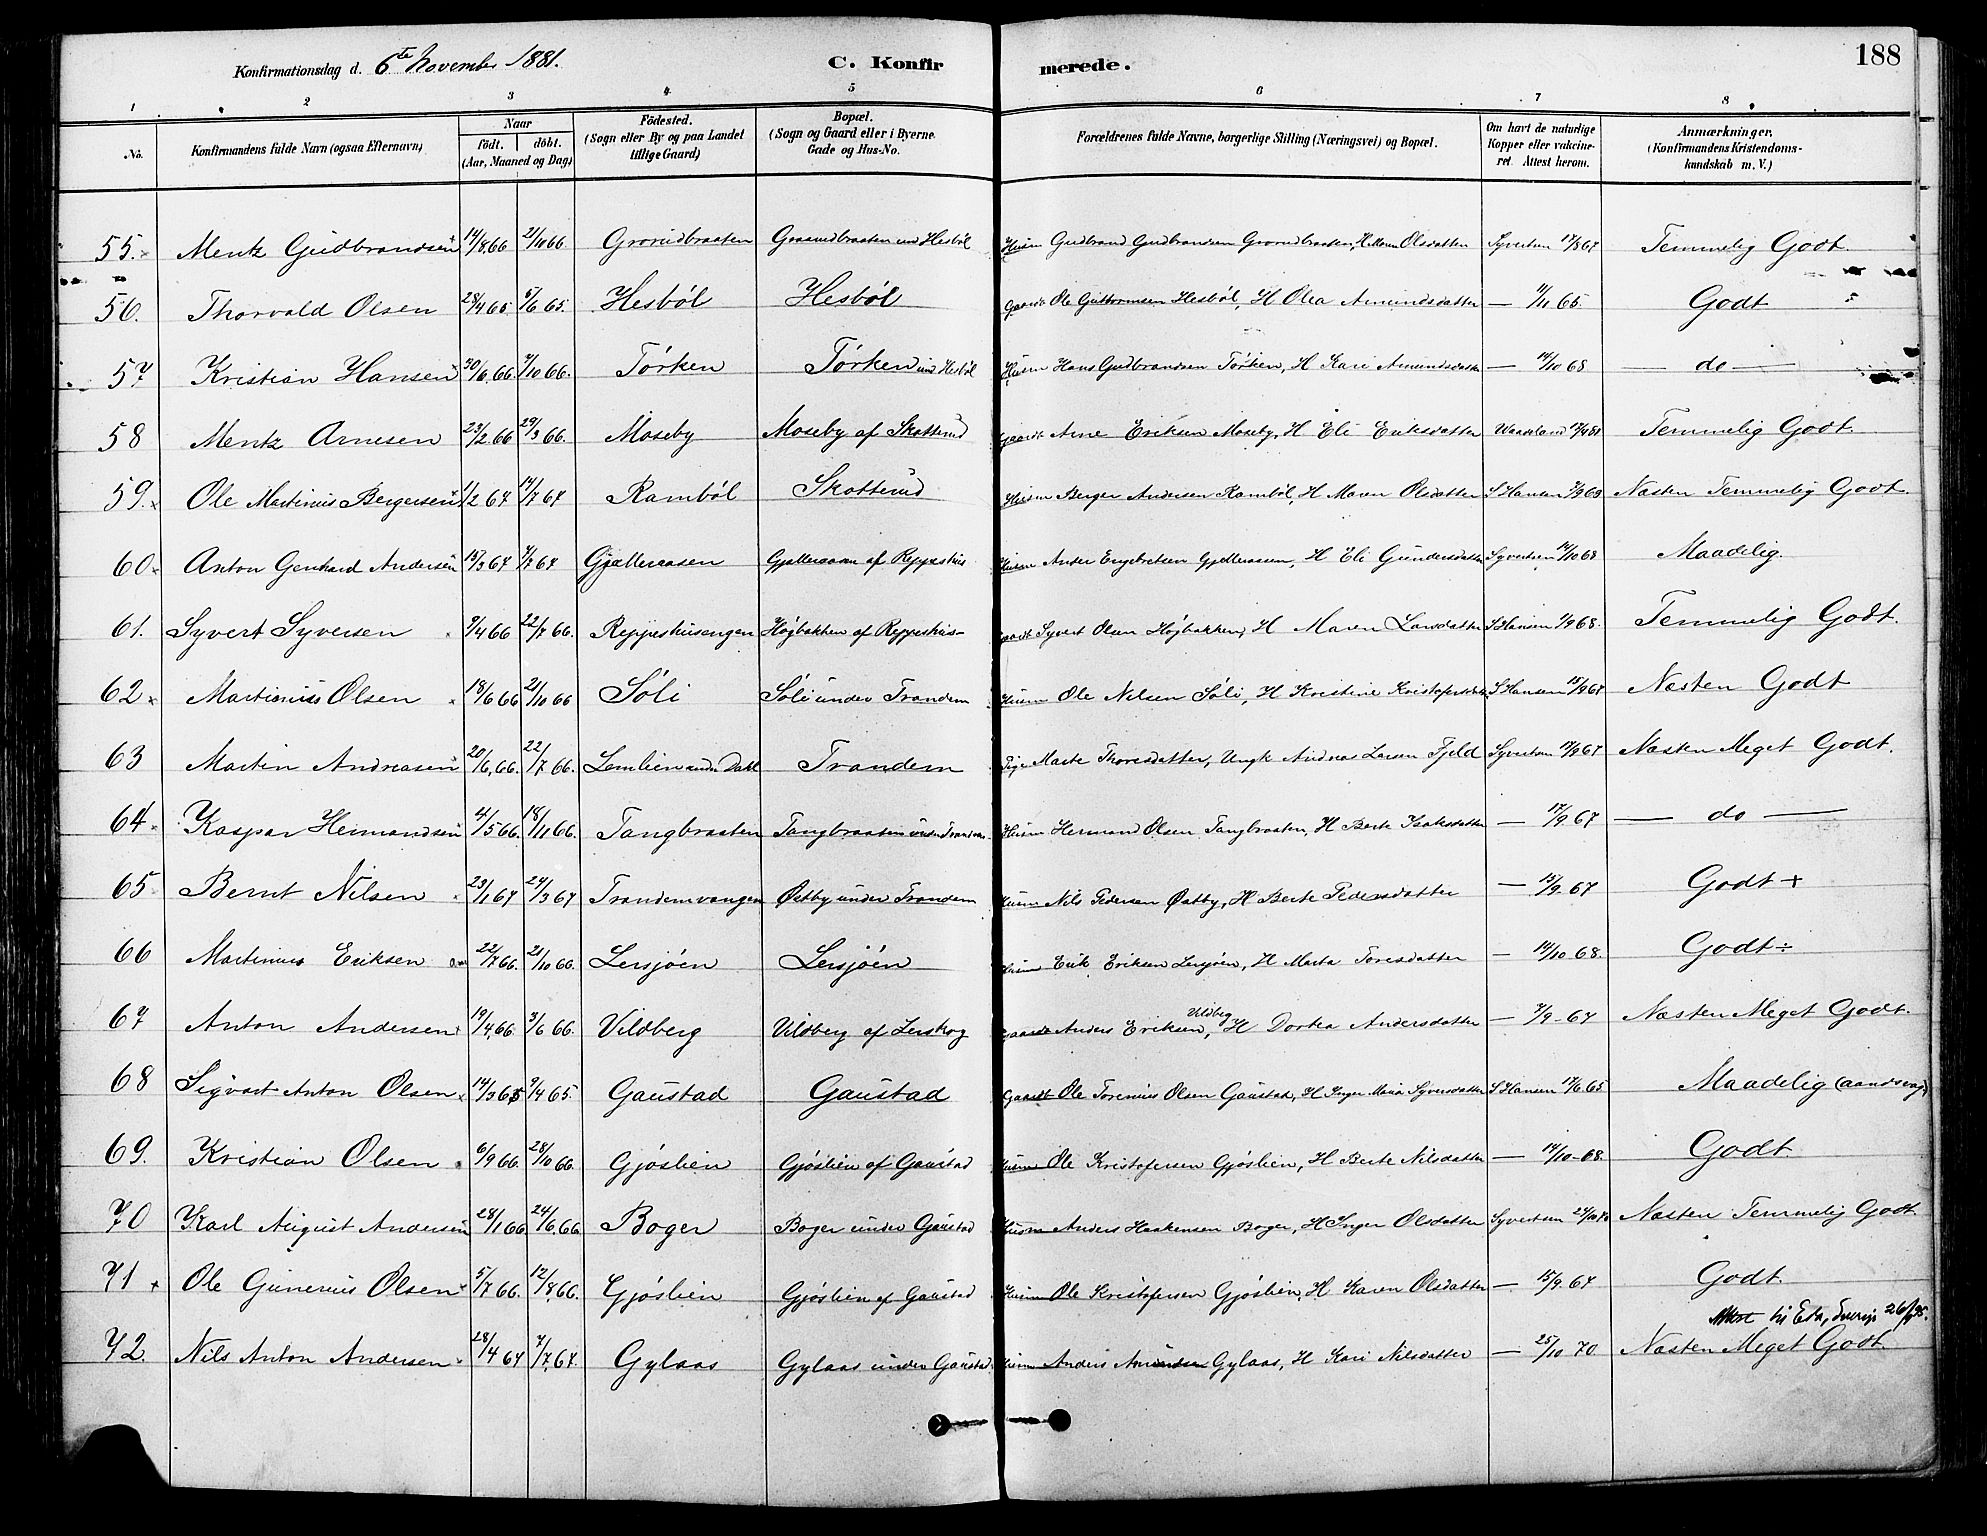 188
Konfirmationsdag d. 6te November 1881. C. Konfir merede.
1 2 3 4 5 6 7 8
No. Konfirmandens fulde Navn (ogsaa Efternavn) Naar födt. döbt. (Aar, Maaned og Dag) Födested. (Sogn eller By og paa Landet tillige Gaard) Bopæl. (Sogn og Gaard eller i Byerne. Gade og Hus-No. Forældrenes fulde Navne, borgerlige Stilling (Næringsvei) og Bopæl. Om havt de naturlige Kopper eller vakcineret. Attest herom. Anmærkninger. (Konfirmandens Kristendomskundskab m. V.)
55. Mentz Gudbrandsen 14/8.66 21/10 66. Grorudbraaten Graarudbraaten und Hesböl Husm Gudbrand Gudbrandsen Grorudbraaten, H. Maren Olsdatter Syvertsen 17/8 67 Temmelig Godt
56. Thorvald Olsen 28/4 65 5/6 65. Hesböl Hesböl Gaardb Ole Guttormsen Hesböl, H Olea Amundsdatter — 11/11 65 Godt
57 Kristian Hansen 30/6.66. 7/10 66. Törken Törken und Hesböl Husm Hans Gudbrandsen Törken, H Kari Amundsdatter — 14/10 68 — do —
58 Mentz Arnesen 23/2.66 29/3 66. Moseby Moseby af Skotterud Gaardb Arne Eriksen Moseby, H Eli Eriksdatter Waaeland 17/4 81 Temmelig Godt.
59. Ole Martinius Bergersen 1/2 67 14/7 67 Ramböl Skotterud Husm Berger Andersen Ramböl, H Maren Olsdatter S Hansen 7/9 69 Næsten Temmelig Godt.
60. Anton Gerhard Andersen 15/3 67 7/7 67 Gjælleraasen Gjælleraasen af Reppeshus Husm Ander Engebretsen Gjelleraasen, H Eli Gundersdatter Syvertsen 14/10 68 Maadelig.
61. Syvert Syversen 9/4 66 22/7 66. Reppeshusengen Höjbakken af Reppeshus- Gaardb Syvert Olsen Höjbakken, H Maren Larsdatter S Hansen 1/9 68. Temmelig Godt.
62. Martinius Olsen 18/6 66 21/10 66 Söli Söli under Trandem Husm Ole Nilsen Söli, H Kristine Kristofersdatter S Hansen 15/9 67 Næsten Godt
63 Martin Andreasen 20/6.66. 22/7 66. Lemlien under Dahl Trandem Pige Marte Thoresdatter, Ungk Andreas Larsen Fjeld Syvertsen 17/9 67 Næsten Meget Godt.
64. Kaspar Hermandsen 4/5 66. 18/11 66. Tangbraaten Tangbraaten under Trandem Husm Hermand Olsen Tangbraaten, H Berte Isaksdatter — 17/9 67 — do —
65 Bernt Nilsen 23/1 67 24/3 67 Trandemvangen Östby under Trandem Husm Nils Pedersen Östby, H Berte Pedersdatter — 15/9 67 Godt +
66 Martinius Eriksen 22/7 66. 21/10 66. Lersjöen Lersjöen Husm Erik Eriksen Lersjöen, H Marta Toresdatter — 14/10 68. Godt ÷
67 Anton Andersen 19/4.66. 3/6 66. Vildberg Vildberg af Lerskog Gaardb Anders Eriksen Vildbeg, H Dortea Andersdatter — 7/9 - 67 Næsten Meget Godt.
68 Sigvart Anton Olsen 14/3 65 9/4 65. Gaustad Gaustad Gaardb Ole Torenius Olsen Gaustad, H Inger Maria Syversdatter S Hansen 17/6 65 Maadelig (aandssvag)
69. Kristian Olsen 6/9 66. 28/10 66. Gjöslien Gjöslien af Gaustad Husm Ole Kristofersen Gjöslien, H Berte Nilsdatter — 14/10 - 68. Godt.
70 Karl August Andersen 28/1 66. 24/6.66. Boger Boger under Gaustad Husm Anders Haakensen Boger, H Inger Olsdatter Syvertsen Næsten Temmelig Godt.
71 + Ole Gunerius Olsen 5/7 66. 12/8.66. Gjöslien Gjöslien af Gaustad Husm Ole Kristofersen Gjöslien, H Karen Olsdatter — 15/9 67 Godt.
til Eda, Sverige
72. Nils Anton Andersen 28/4 67 7/7.67. Gylaas Gylaas under Gaustad. Husm Anders Amundsen Gylaas, H Kari Nilsdatter — 25/10 70 Næsten Meget Godt